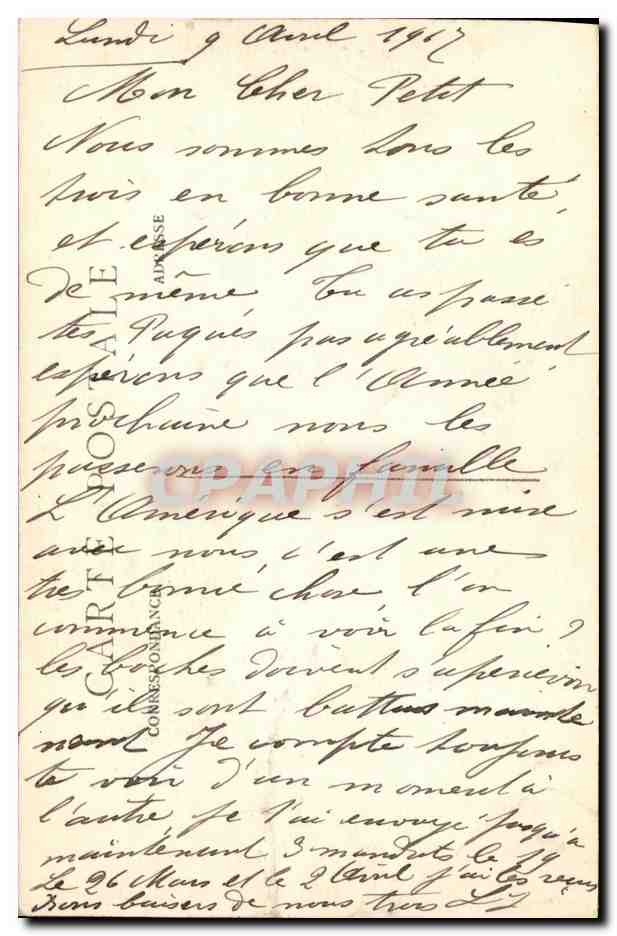 Lundi 9 Avril 1917
Mon Cher Petit
Nous sommes tous les
trois en bonne santé,
et espérons que tu es
de même Tu as passé
tes Paques pas agréablement
espérons que l'Année
prochaine nous les
passerons en famille
L'Amérique s'est mise
avec nous c'est une
tres bonne chose l'on
commence à voir la fin ?
les boches doivent s'apercevoir
qu'ils sont battus mainte
nant Je compte toujours
te voir d'un moment à
l'autre je t'ai envoyé jusqu'à
maintenant 3 mandats le 19
Le 26 Mars et le 2 Avril j'ai les reçus
Bons baisers de nous trois
CARTE POSTALE
CORRESPONDANCE
ADRESSE
CPAPHIL